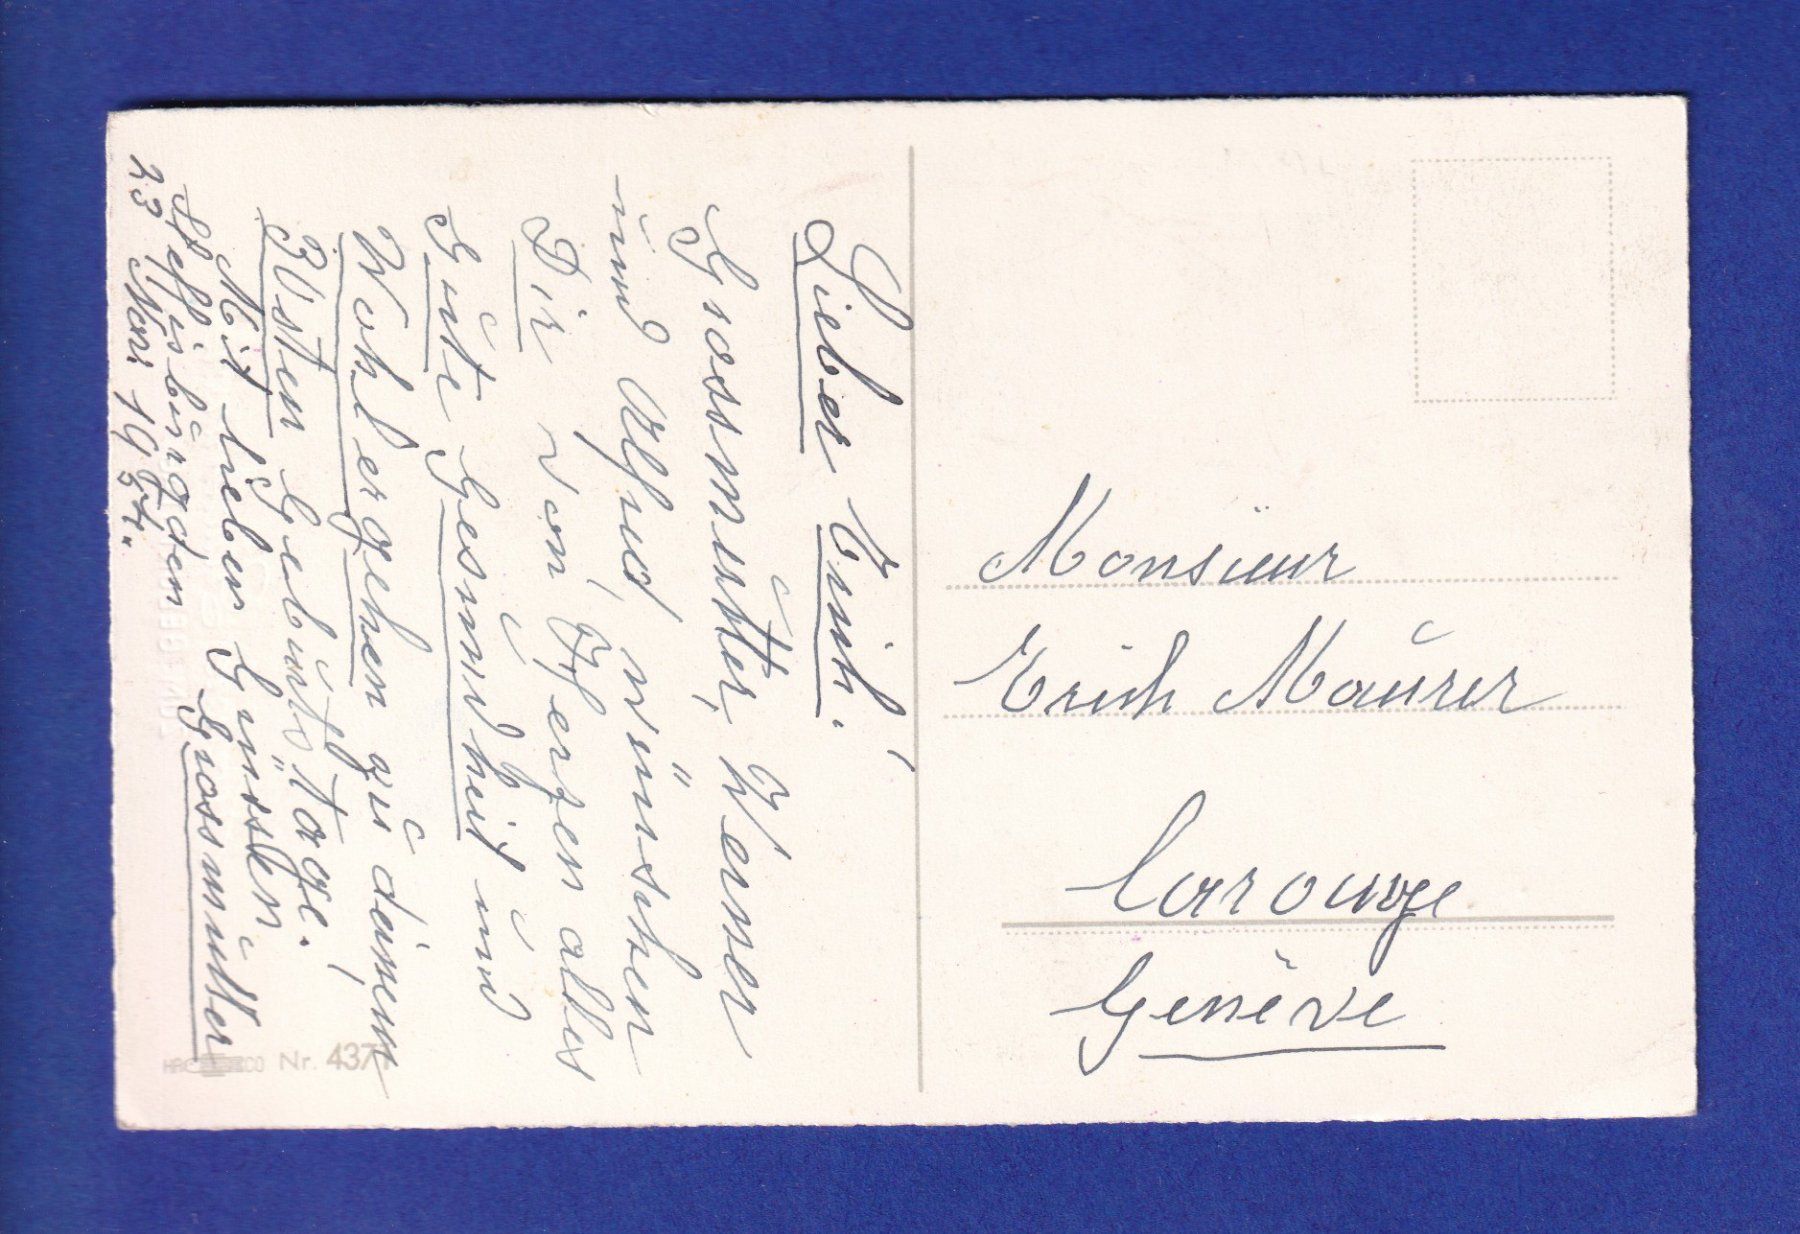 Lieber Erich!
Grossmutter, Werner
und Alfred, wünschen
Dir von Herzen alles
Gute Gesundheit und
Wohlergehen zu deinem
30sten Geburtstage.
Mit lieben Grüssen
Grossmutter
Steffisburg den
23 Nov. 1954.
Nr. 4371
Monsieur
Erich Maurer
Carouge
Genève